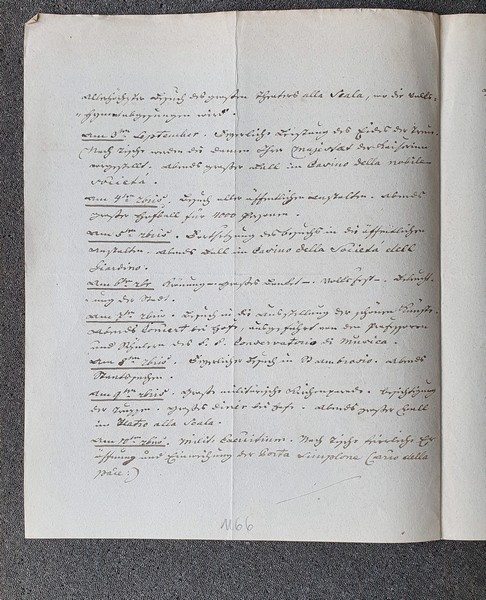 Allerhöchster Besuch des großen Theaters alla Scala, wo die Volks-
Hymne abgesungen wird.
Am 3ten September. Feyerliche Leistung des Eides der Treue.
(Nach Tische werden die Damen Ihrer Majestät der Kaiserin
vorgestellt. Abends großer Ball im Casino della nobile
Societá.
Am 4ten 7bris. Besuch aller öffentlichen Anstalten. Abends
großer Hofball für 4000 Personen.
Am 5ten 7bris. Fortsetzung des Besuchs in die öffentlichen
Anstalten. Abends Ball im Casino della Societá dell
Giardino.
Am 6ten 7br. Krönung - großes Banket -. Volksfest -. Beleucht-
ung der Stadt.
Am 7ten 7bris. Besuch in die Ausstellung der schönen Künste.
Abends Concert bei Hofe, ausgeführt von den Professoren
und Schülern des k. k. Conservatorio di Musica.
Am 8ten 7bris. Feyerlicher Besuch in St Ambrosio. Abends
Am 9ten 7bris. Große militärische Kirchenparade. Besichtigung
der Truppen. Großes Diner bei Hofe. Abends großer Ball
im Teatro alla Scala.
Am 10ten 7bris. Milit. Exercitium. Nach Tische feierliche Er-
öffnung und Einweihung der Porta Simplone (arco della
pace.)
1166